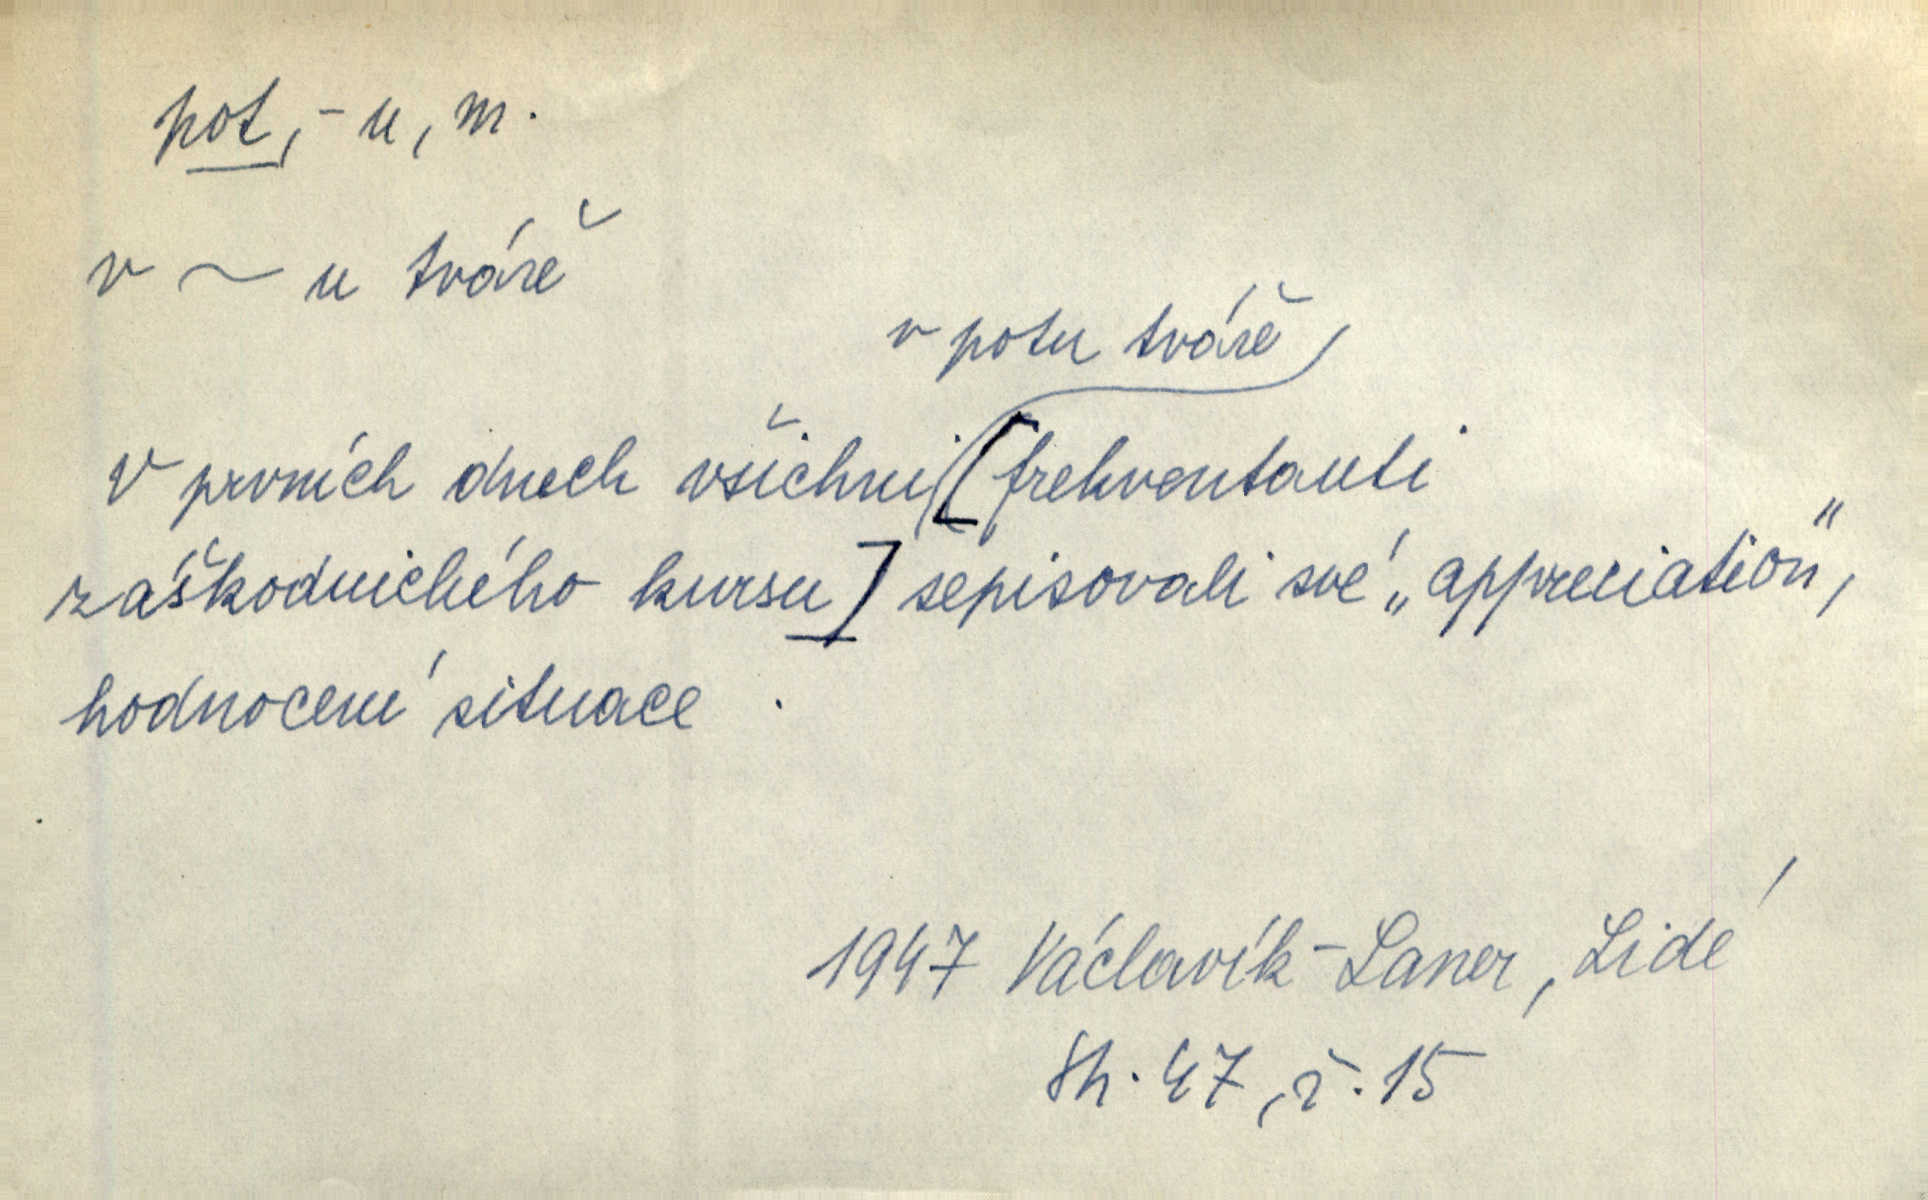 pot, -u, m.
v ~ u tváře
v potu tváře
V prvních dnech všichni [frekventanti
záškodnického kursu] sepisovali své „appreciation",
hodnocení situace .
1947 Václavík-Laner, Lidé
47, č. 15